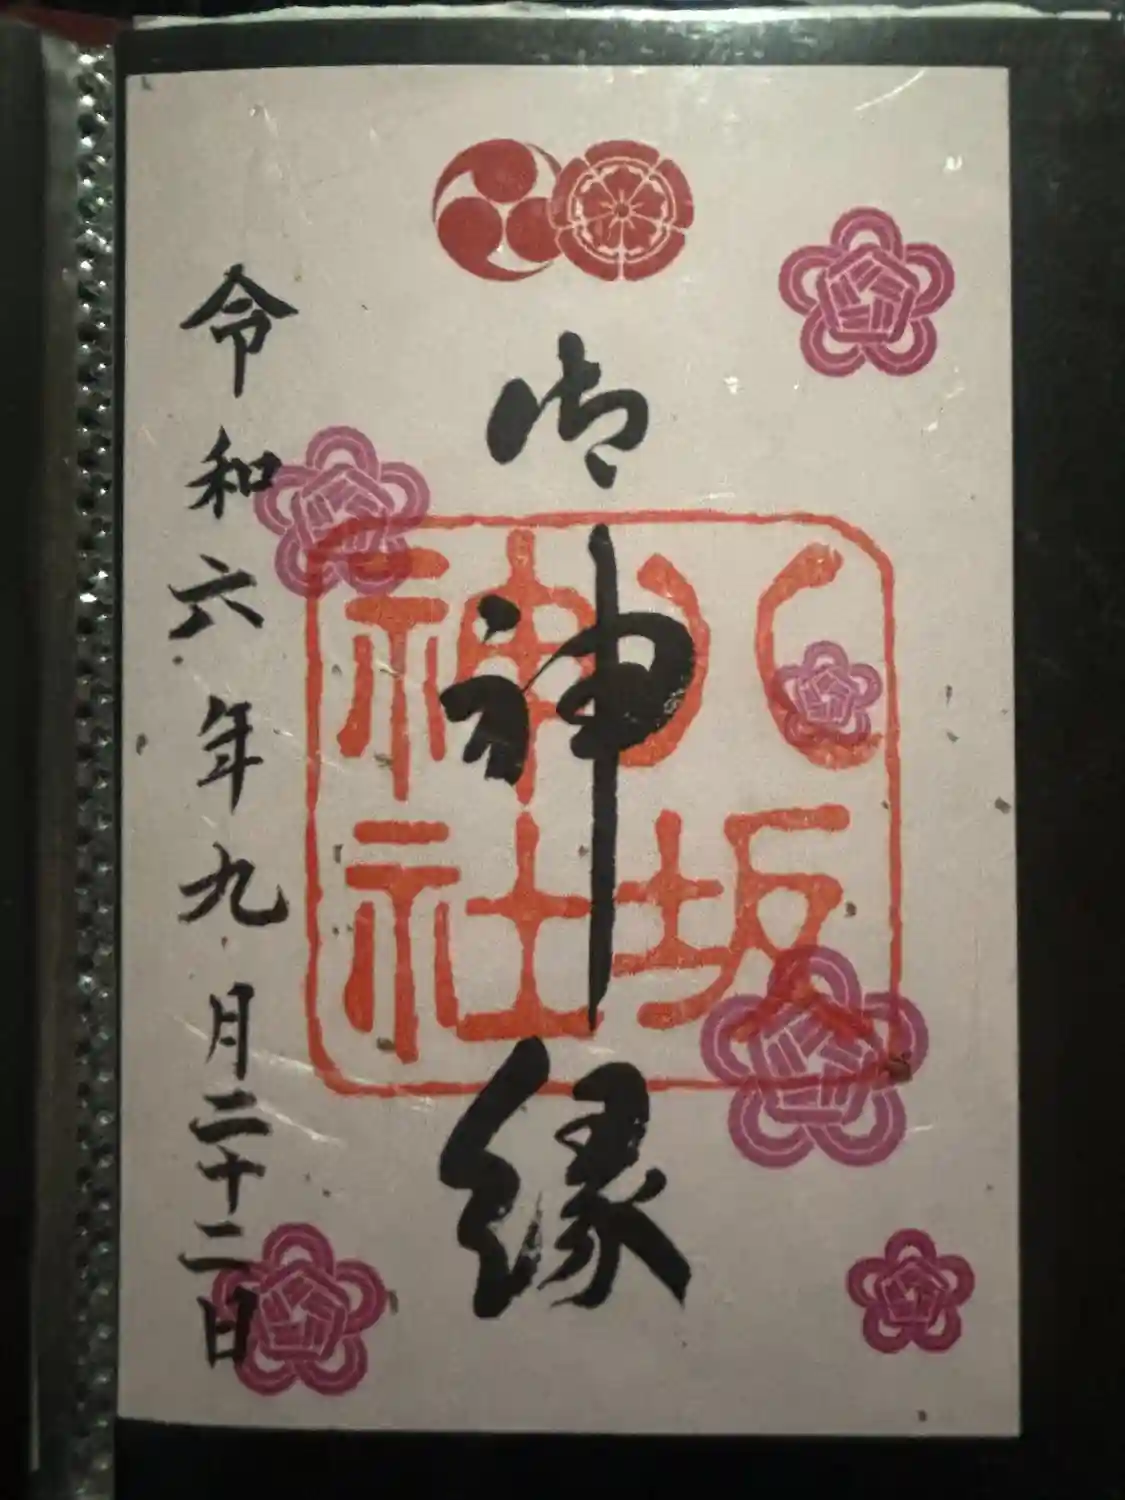 御神縁
八坂神社
令和六年九月二十二日